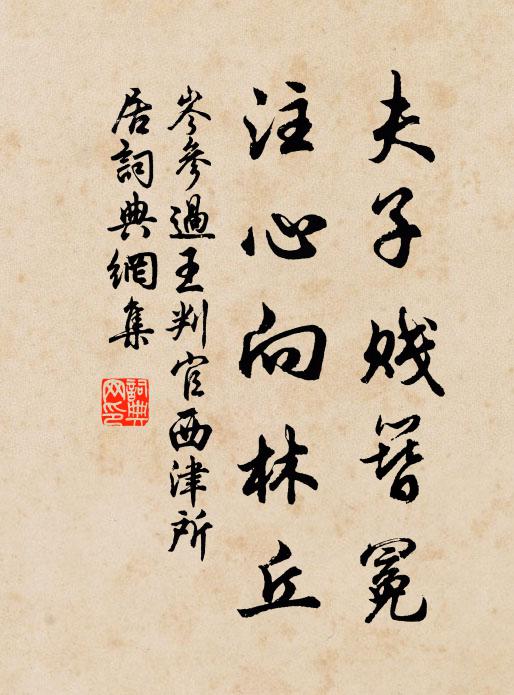 夫子贱簪冕
注心向林丘
岑參過王判官西津所
居詞典網集
詞典網印